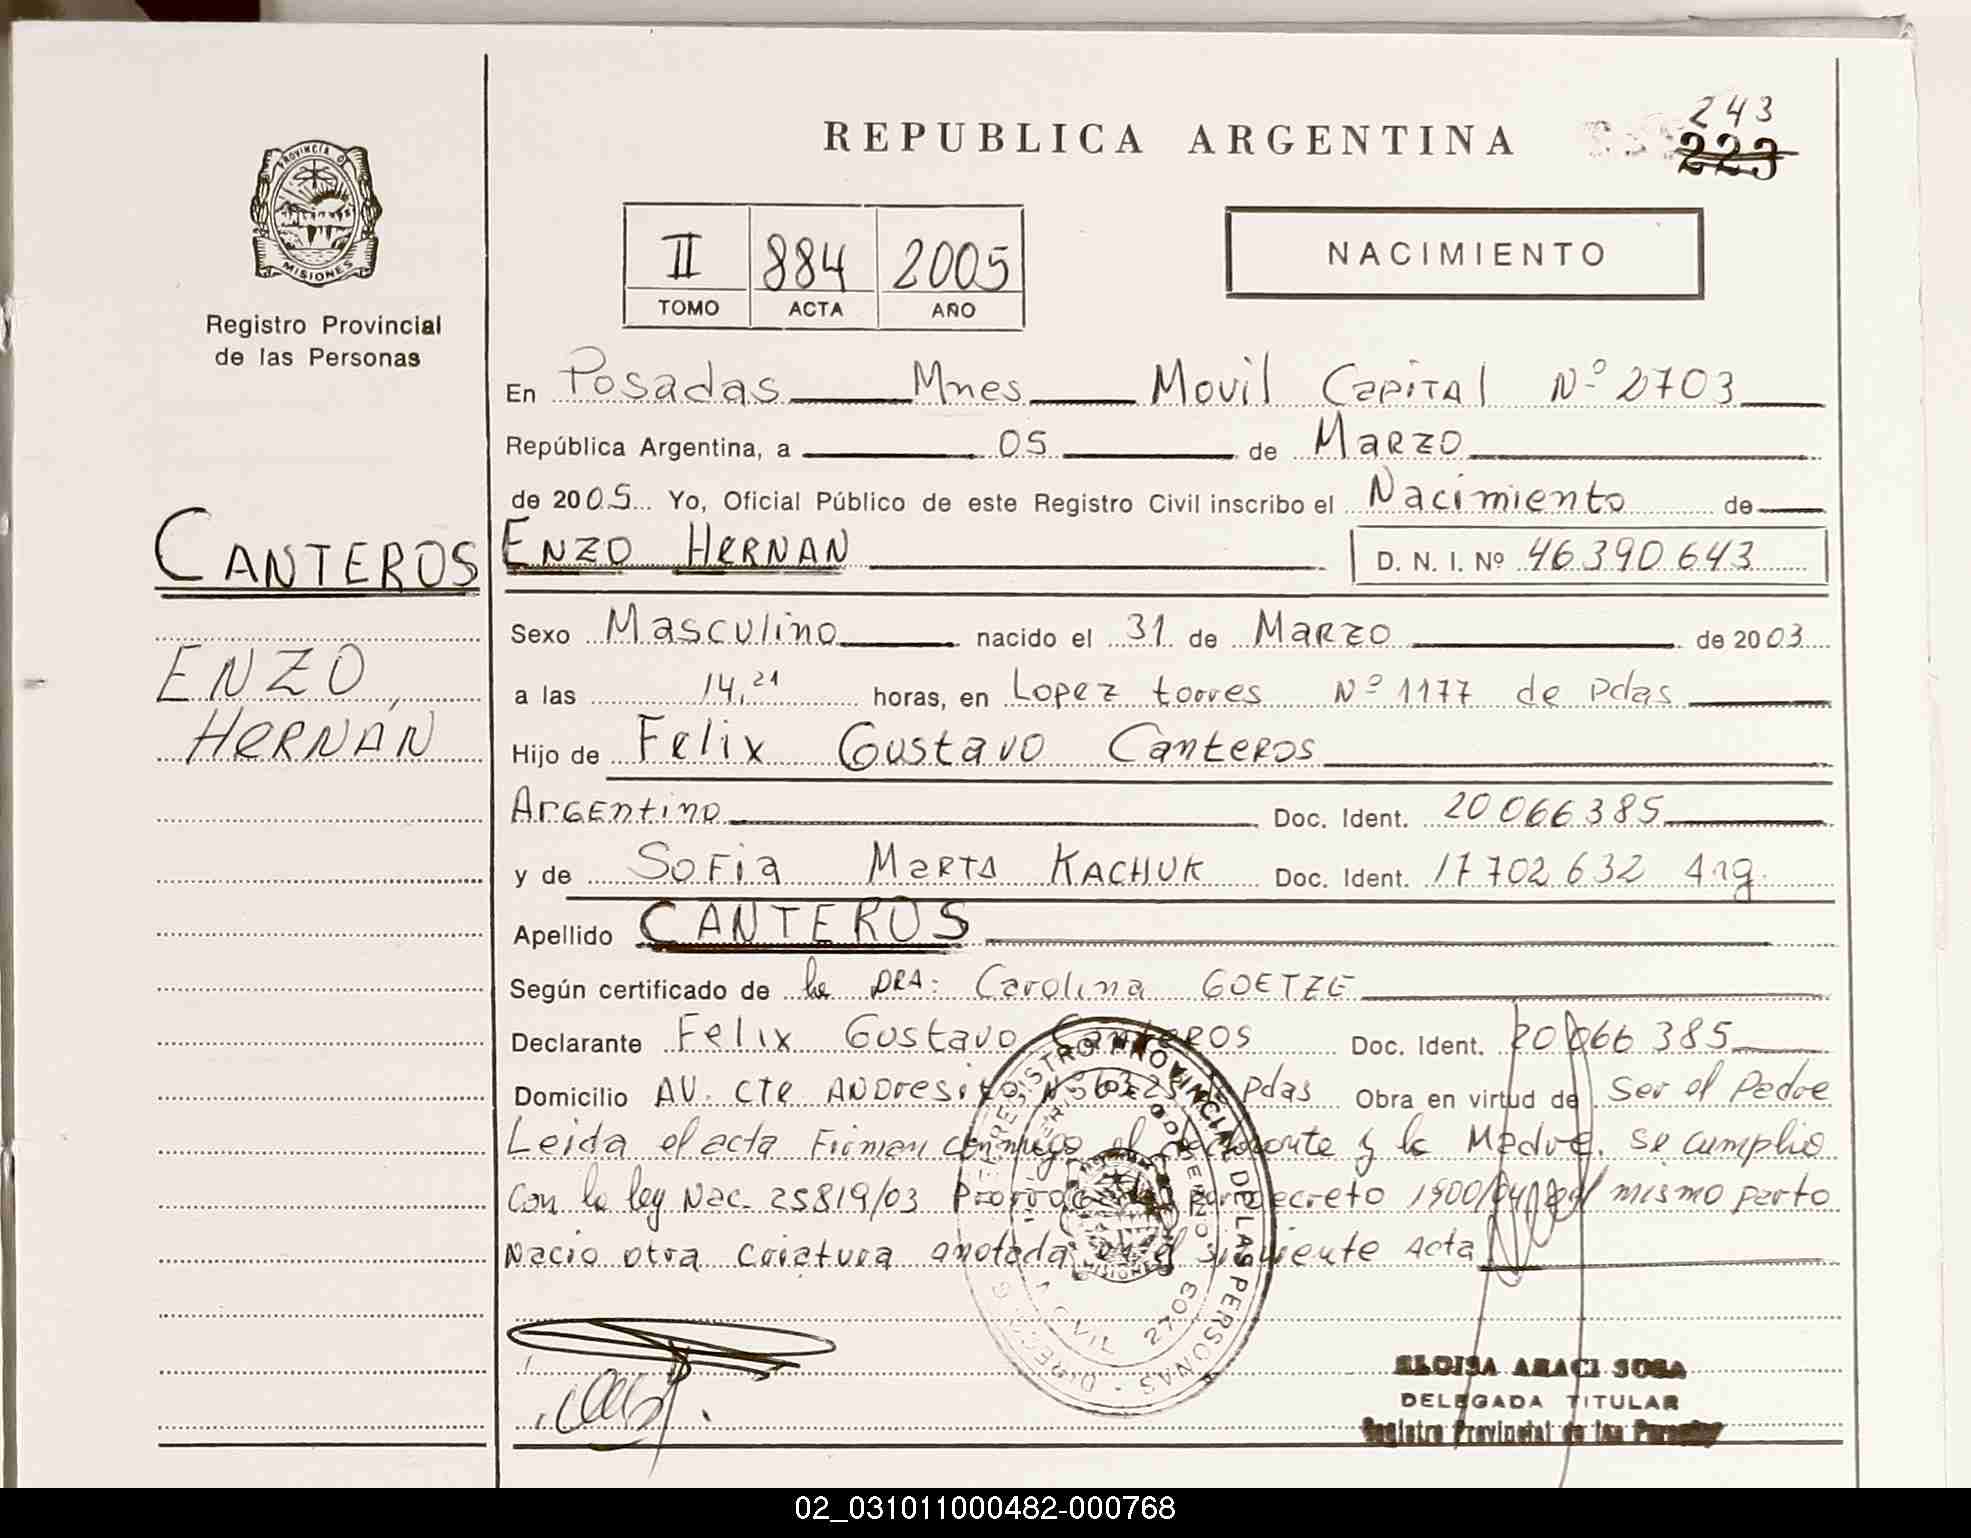 REPUBLICA ARGENTINA
243
223
PROVINCIA D
MISIONES
Registro Provincial
de las Personas
II 884 2005
TOMO ACTA AÑO
NACIMIENTO
En Posadas Mnes Movil Capital Nº 2703
República Argentina, a 05 de Marzo
de 2005 Yo, Oficial Público de este Registro Civil inscribo el Nacimiento de
CANTEROS
ENZO HERNAN
D. N. I. Nº 46390643
Sexo Masculino nacido el 31 de Marzo de 2003
ENZO
HERNÁN
a las 14,21 horas, en Lopez torres Nº 1177 de Pdas
Hijo de Felix Gustavo Canteros
Argentino Doc. Ident. 20066385
y de Sofia Marta KACHUK Doc. Ident. 17702632 Arg.
Apellido CANTEROS
Según certificado de la DRA: Carolina GOETZE
Declarante Felix Gustavo Canteros Doc. Ident. 20066385
Domicilio AV. CTE ANDresito Nº Pdas Obra en virtud de Ser el Padre
Leida el acta Firman conmigo el declarante y la Madre. Se cumplio
con la ley Nac. 25819/03 Prorrogada por decreto 1900/04 del mismo parto
Nacio otra criatura anotada en el siguiente Acta
REGISTRO PROVINCIAL DE LAS PERSONAS
CIVIL 2703
MISIONES
ELOISA ARACI SOSA
DELEGADA TITULAR
Registro Provincial de las Personas
02_031011000482-000768